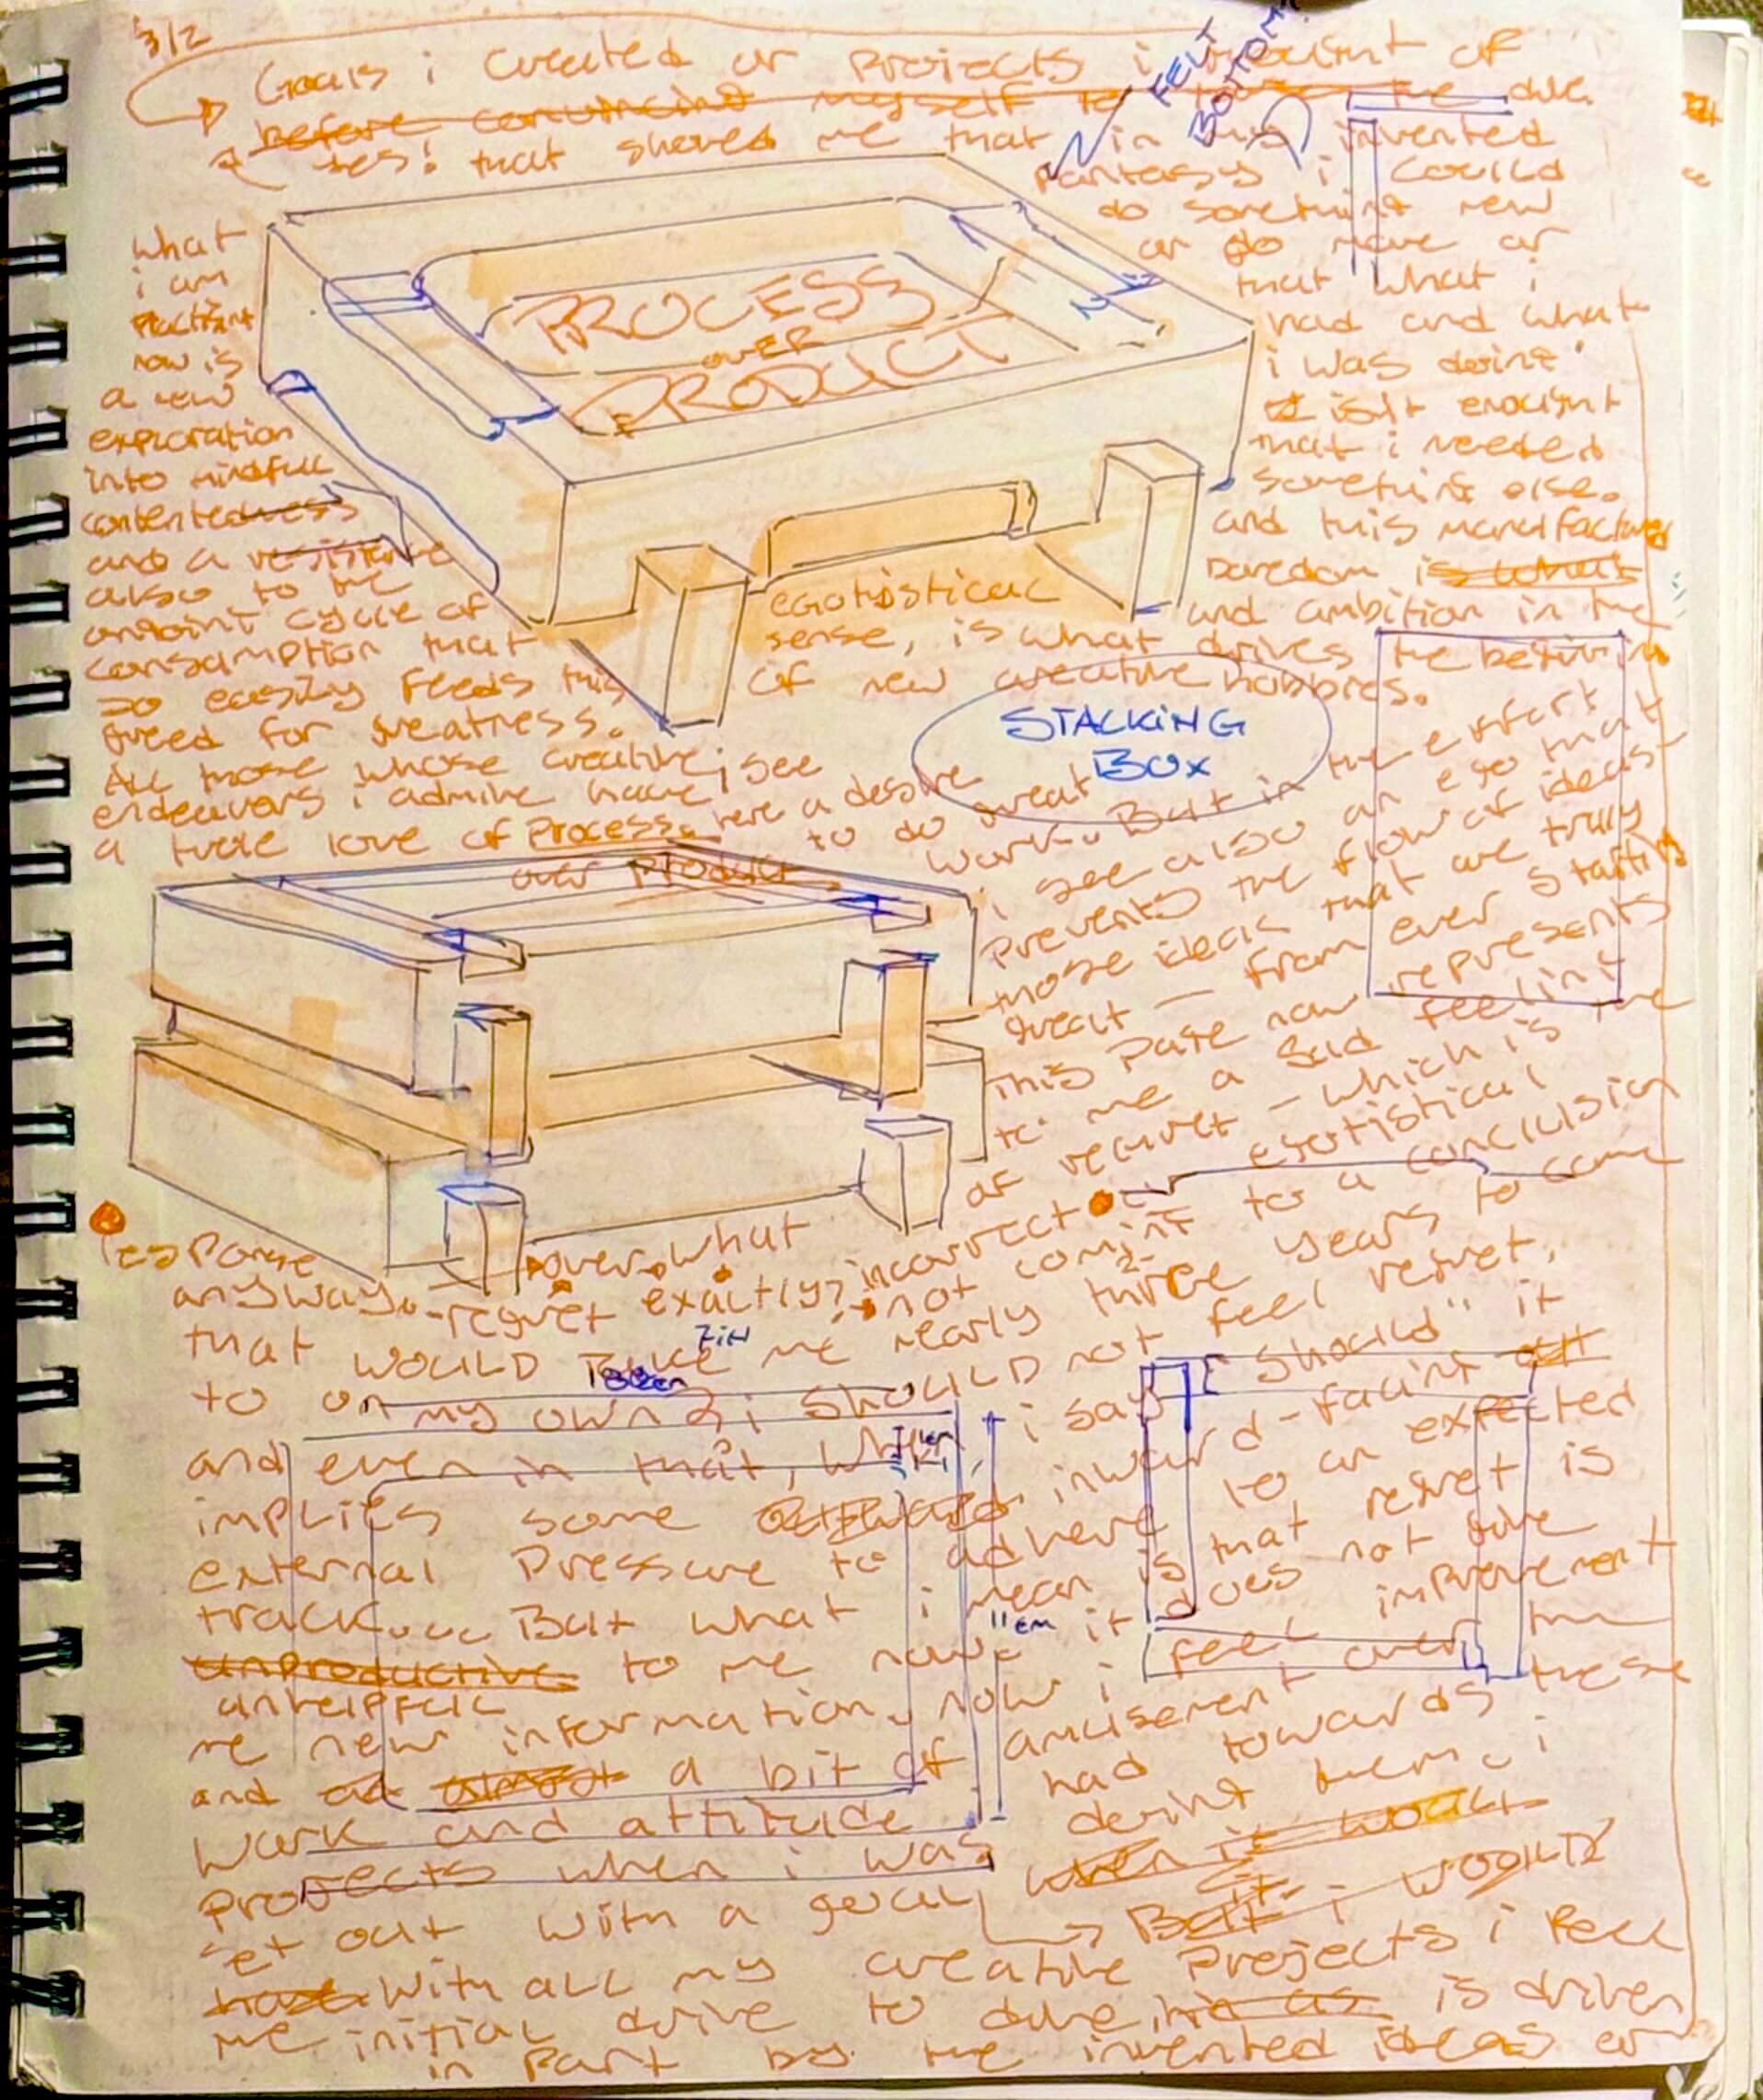 3/2
Goals i created or projects i
before convincing myself to
tes! that showed me that in this invented
fantasy i could
do something new
or do more or
that what i
had and what
i was doing
isn't enought
that i needed
something else.
and this manufactured
boredom is what
and ambition in the
egotistical
sense, is what drives the begining
of new creative hobbies.
FELT
BOTTOM?
PROCESS
OVER
PRODUCT
what
i am
now is
a new
exploration
into mindful
contentedness
and a resistance
also to the
cycle of
consumption that
so easily feeds this
greed for greatness.
All those whose creative
endeavors i admire have, i see
a true love of process
over product.
here a desire
to do great
work. But in the effort
i see also an ego that
prevents the flow of ideas
those ideas that are truly
great — from ever starting
this page now represents
to me a sad feeling
of regret — which is the
egotistical
STACKING
BOX
response
over what
anyway. - regret exactly? incorrect
i'm not coming to a conclusion
that would take me nearly three years to come
to on my own & i should not feel regret.
and even in that, when i say "should" it
implies some inward-facing
external pressure to adhere to an expected
track... But what i mean is that regret is
unproductive to me now it does not give
unhelpful
me new information, now i feel improvement
and a bit of amusement over the
work and attitude had towards these
projects when i was doing them. i
set out with a goal when it would
But i would
with all my creative projects i feel
me initial drive to is driven
in part by the invented ideas or
7in
11cm